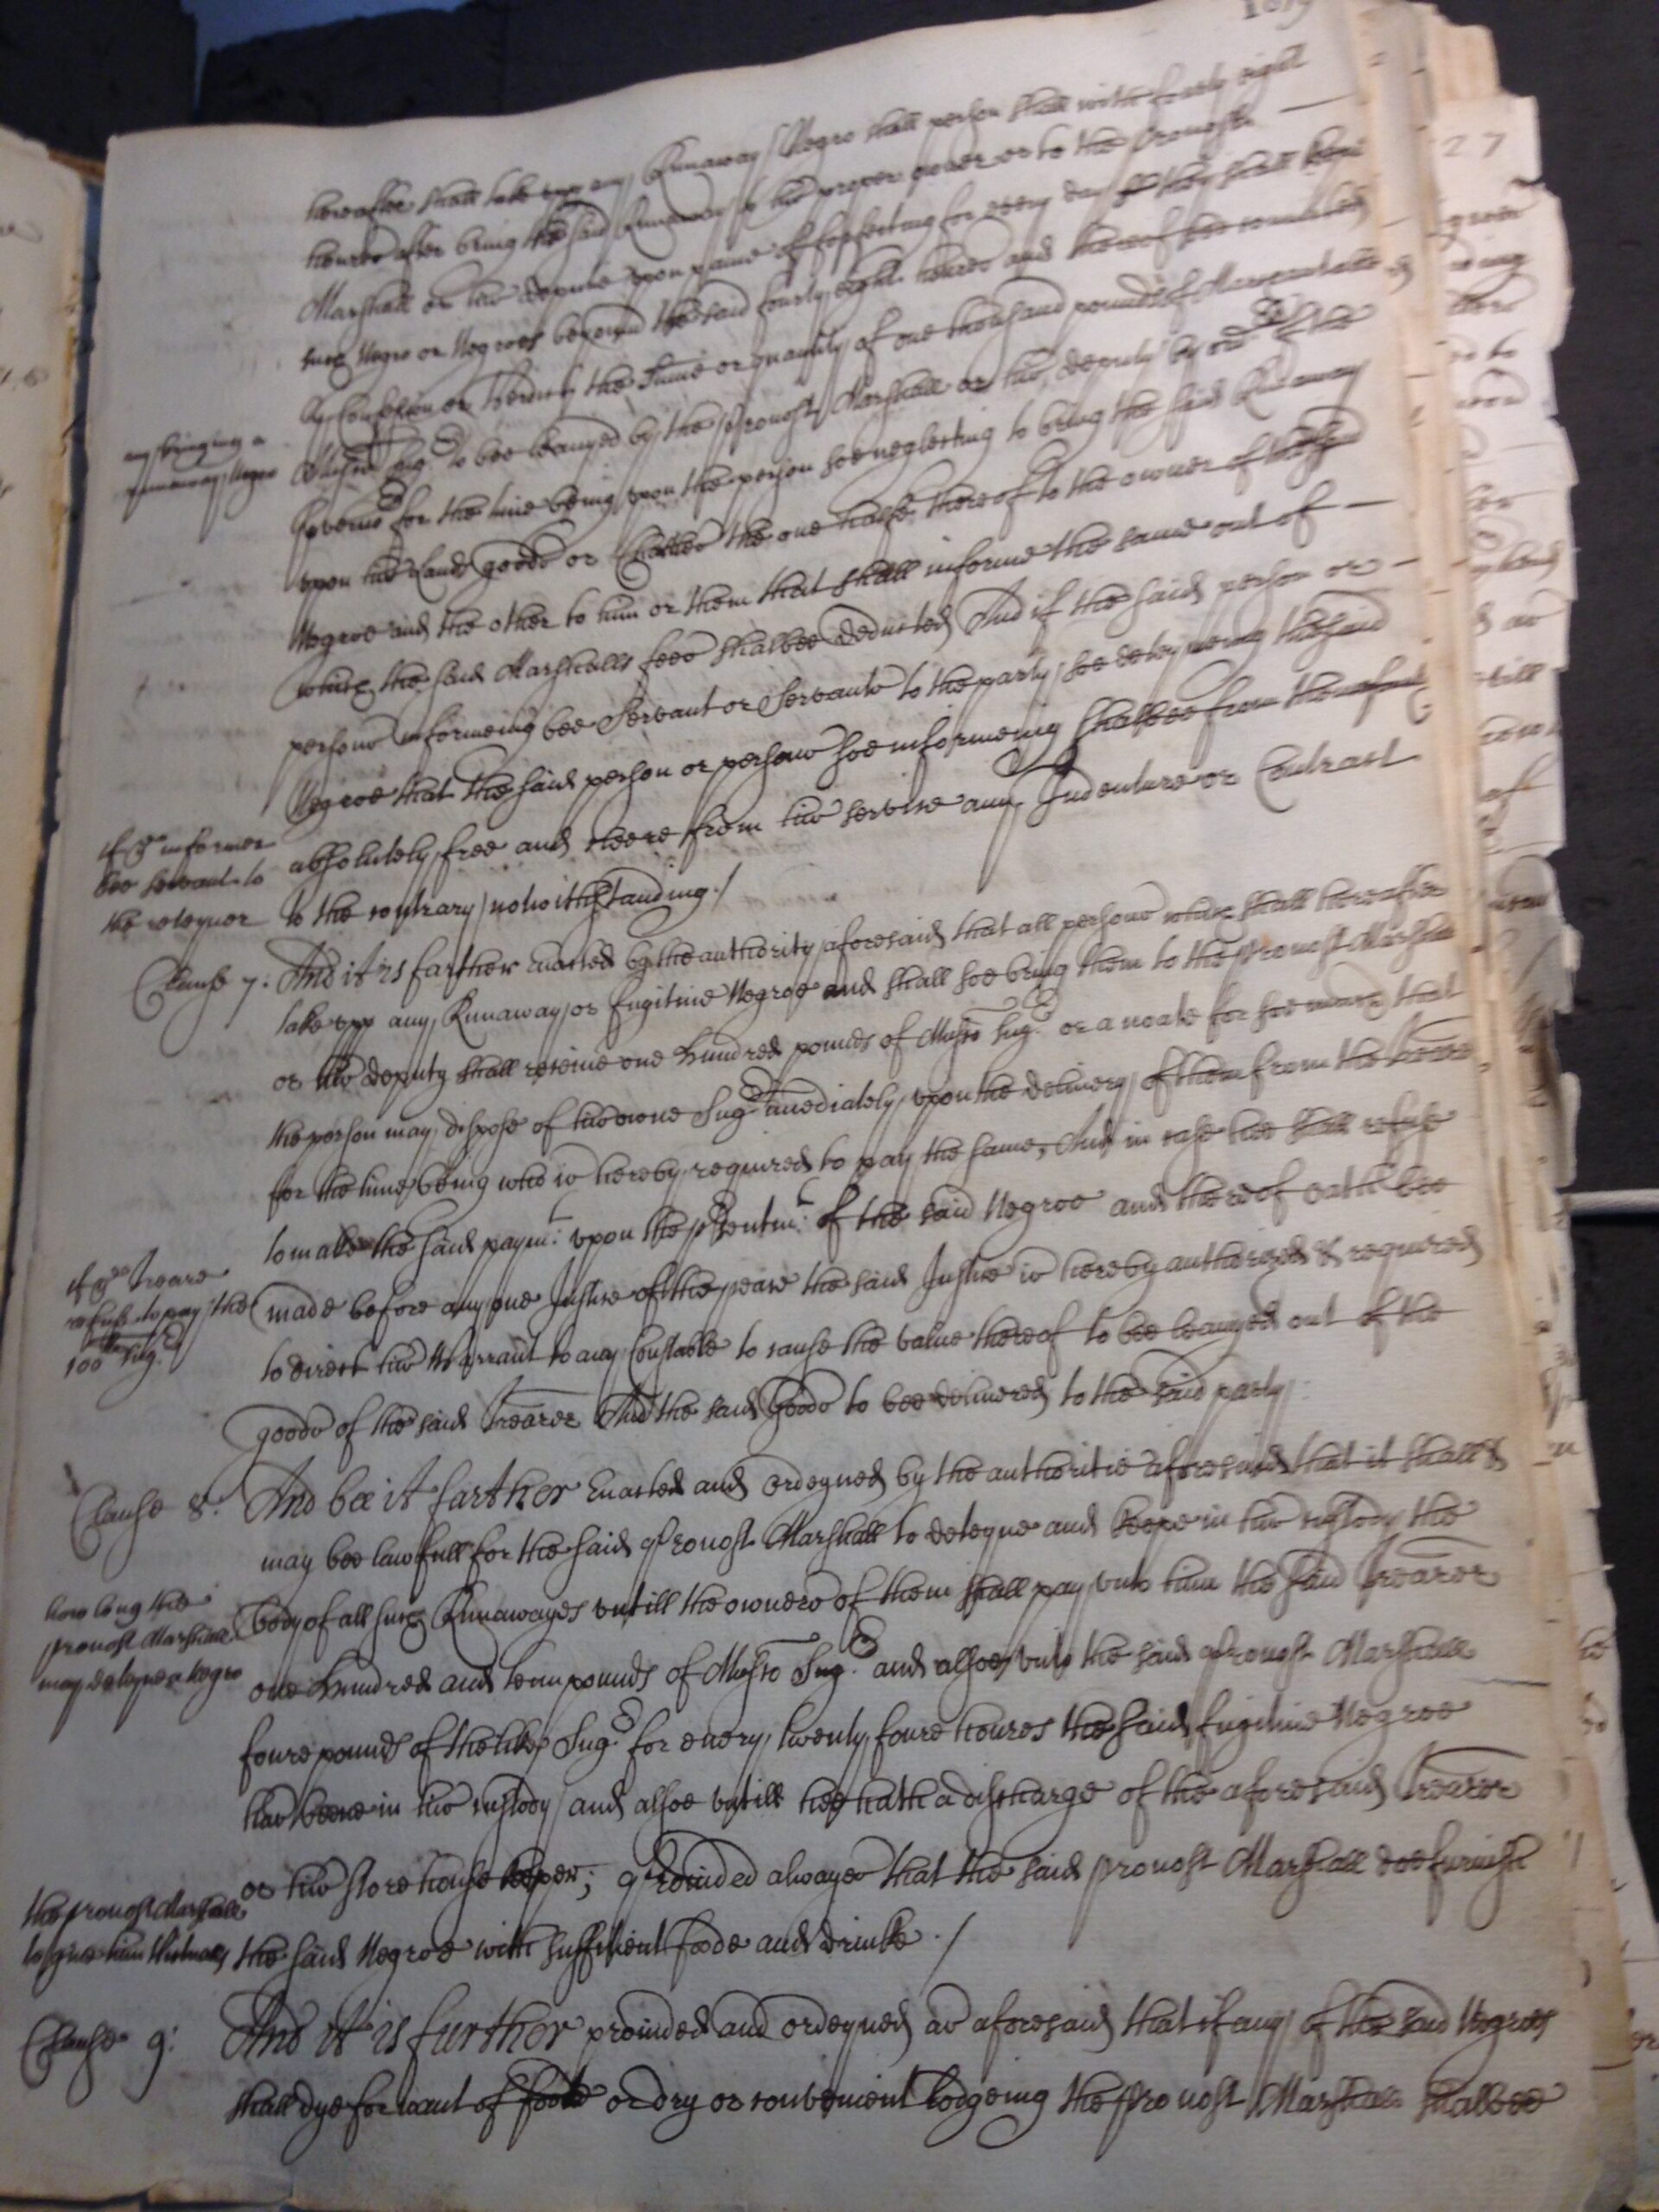 hereafter shall take upp any Runaway Negro shall person shall with fourty eight
houres after bring the said Runaway to his proper owner or to the Provost
Marshall or his deputie upon paine of forfeiting for every day they shall keepe
such Negro or Negroes beyound the said fourty eight houres and thereof bee convicted
by Confession or Verdict the Sume or quantity of one thousand pounds of
Musco Sug: to bee leauyed by the Provost Marshall or his deputy by ordr of the
Governor for the time being upon the person soe neglecting to bring the said Runaway
upon his Lands goods or Chattles the one halfe thereof to the owner of the said
Negroe and the other to him or them that shall informe the same out of
which the said Marshalls fees shalbee deducted And if the said person or
persons informeing bee Servant or Servants to the party soe deteyneing the said
Negroe that the said person or persons soe informeing shalbee from thenceforth
absolutely free and cleere from his service any Indenture or Contract
to the contrary notwithstanding./
any bringing a
runaway Negro
if ye informer
bee servant to
the deteynor
Clause 7: And it is farther Enacted by the authority aforesaid that all persons which shall hereafter
take upp any Runaway or fugitive Negroe and shall soe bring them to the Provost Marshall
or his deputy shall receive one hundred pounds of Musco Sug: or a noate for soe much that
the person may dispose of his owne Sug: imediately upon the delivery of them from the Trearer
for the time being who is hereby required to pay the same, And in case hee shall refuse
to make the said paymt: upon the psentmt: of the said Negroe and thereof oath bee
made before any one Justice of the peace the said Justice is hereby authorized & required
to direct his Warrant to any Constable to cause the value thereof to bee leauyed out of the
goods of the said Trearer And the said Goods to bee delivered to the said party
if ye Trearer
refuse to pay the
100lb Sug:
Clause 8: And bee it farther Enacted and ordeyned by the authoritie aforesaid that it shall &
may bee lawfull for the said Provost Marshall to deteyne and keepe in his custody the
body of all such Runawayes untill the owners of them shall pay unto him the said Trearer
one hundred and tenn pounds of Musco Sug: and alsoe unto the said Provost Marshall
foure pounds of the like Sug: for euery twenty foure houres the said fugitive Negroe
has beene in his custody and alsoe untill hee hath a discharge of the aforesaid Trearer
or his store house keeper; Provided alwayes that the said Provost Marshall doe furnish
the said Negroe with sufficient foode and drinke ./
how long the
Provost Marshall
may deteyne a Negro
the Provost Marshall
to give him victualls
Clause 9: And it is further provided and ordeyned as aforesaid that if any of the said Negroes
shall dye for want of foode or dry or convenient lodgeing the Provost Marshall shalbee